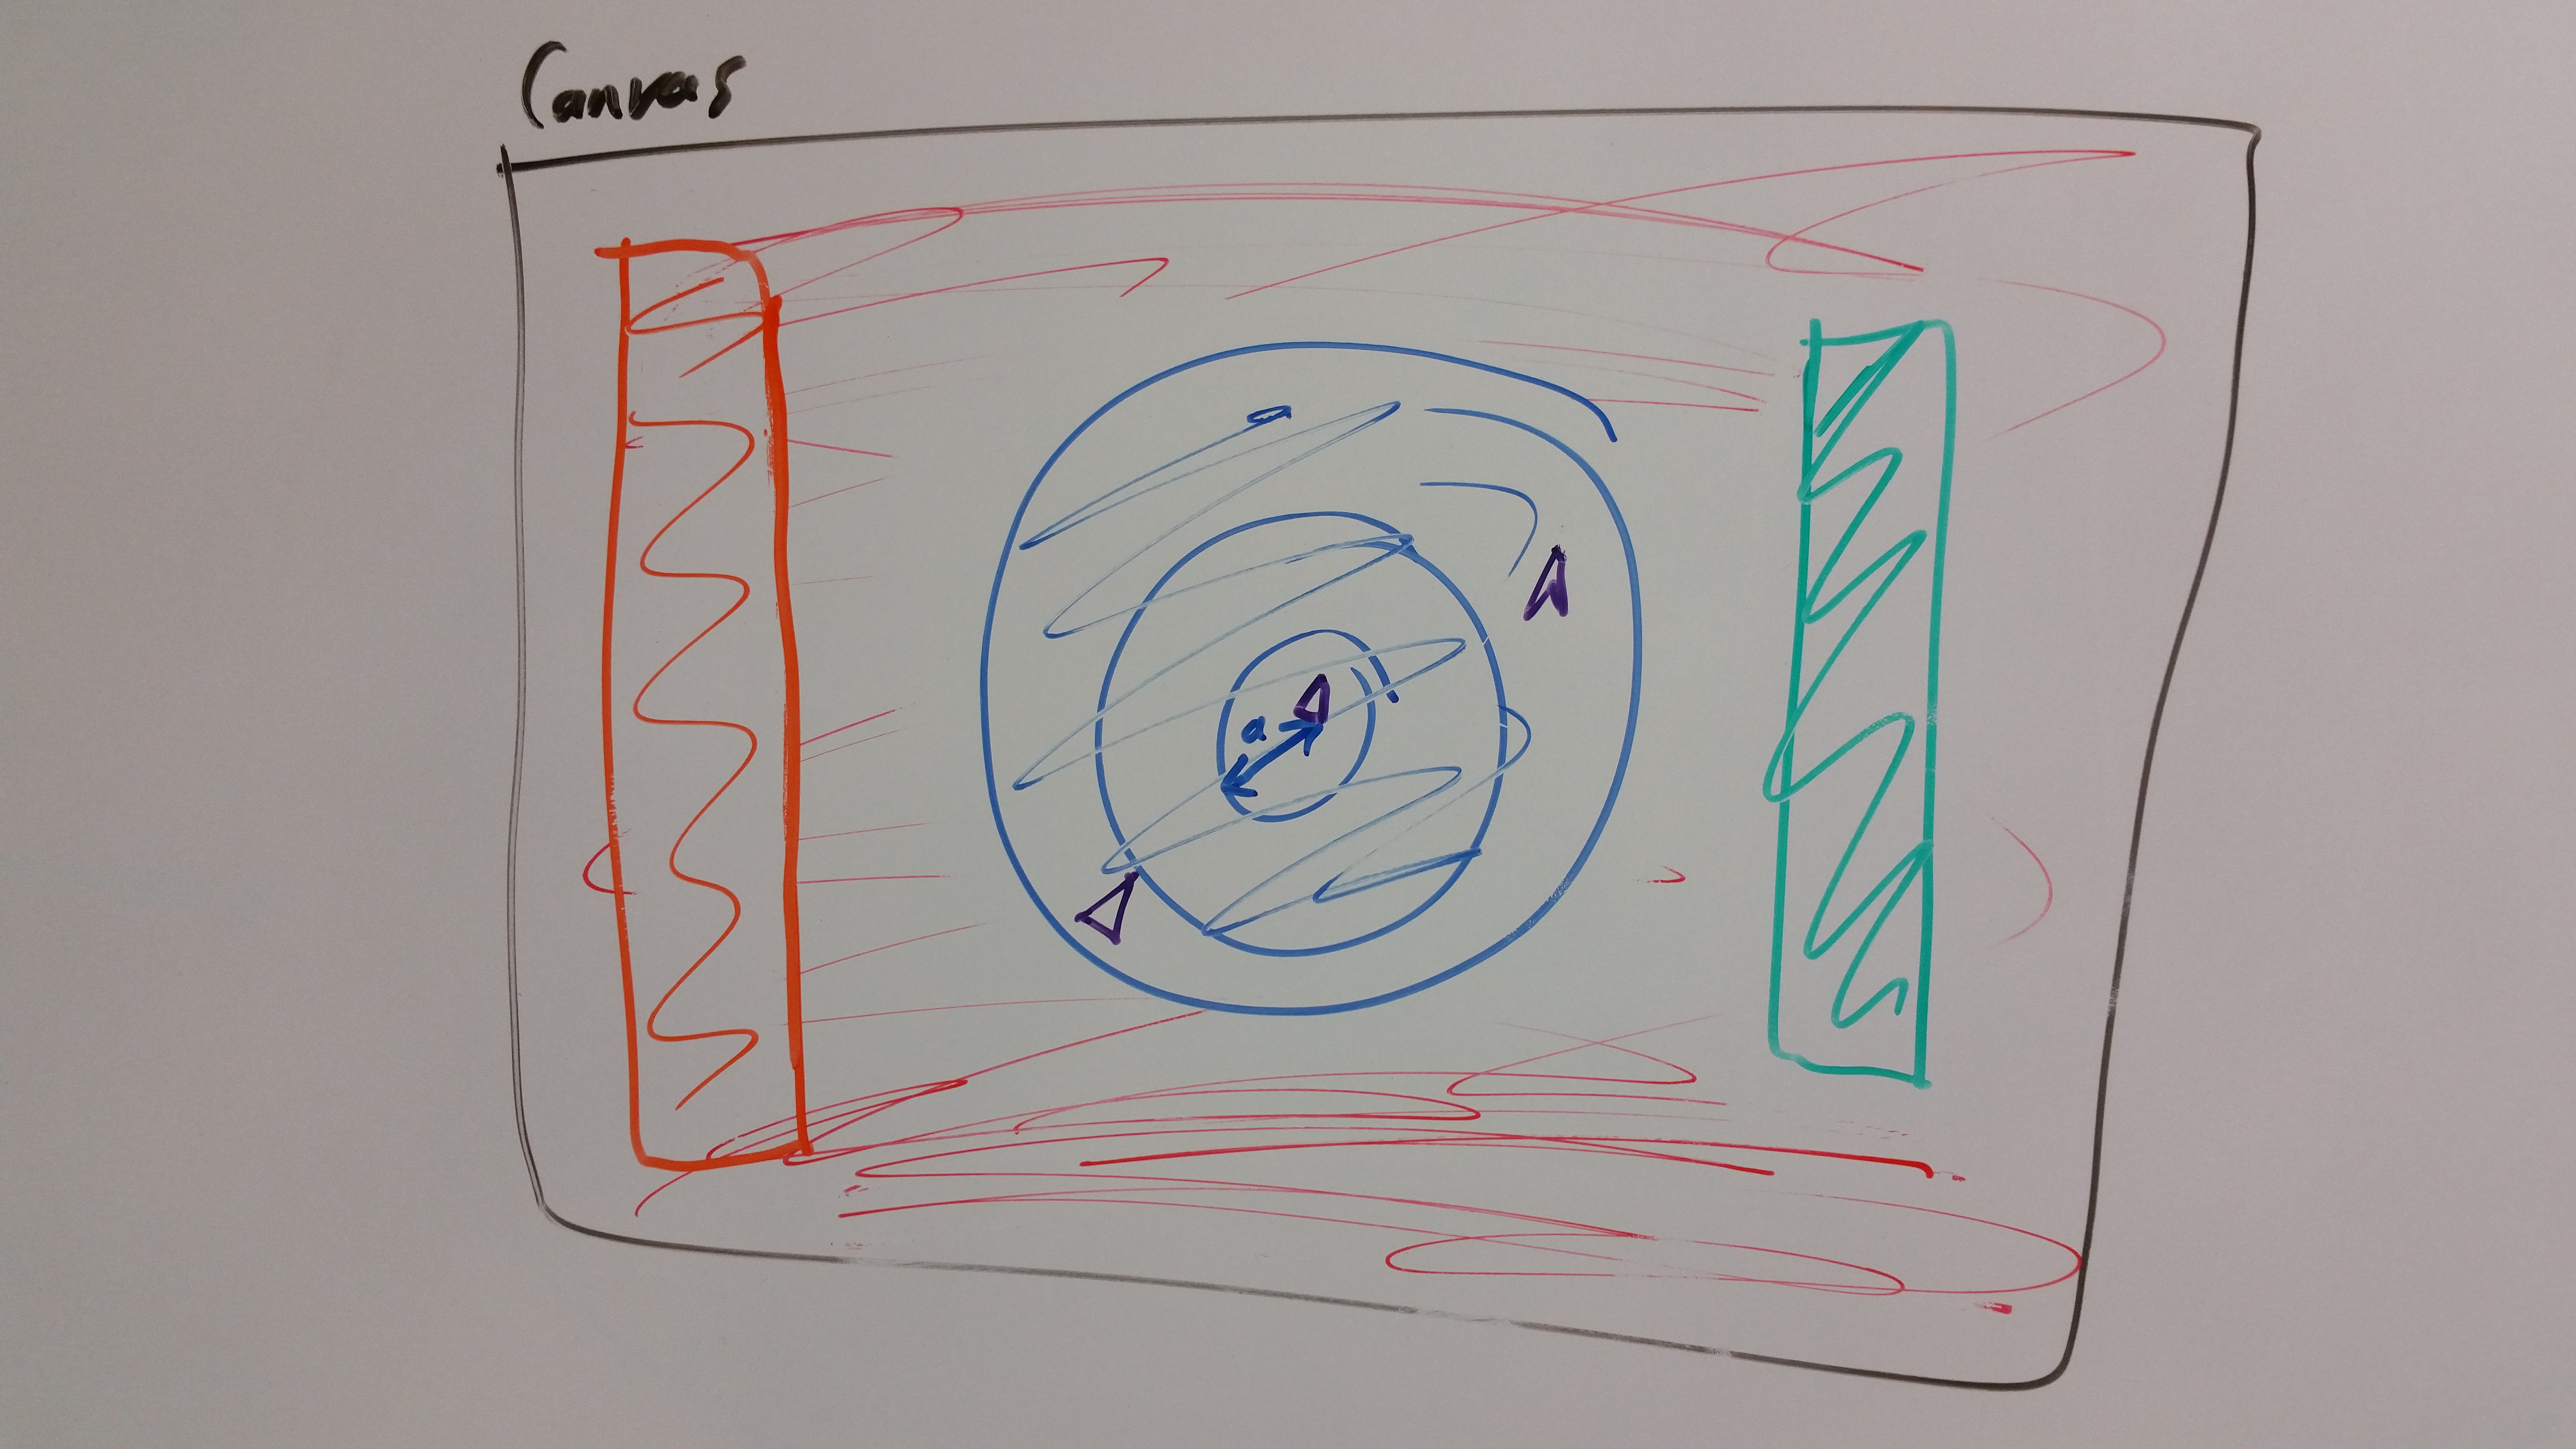 Canvas
a